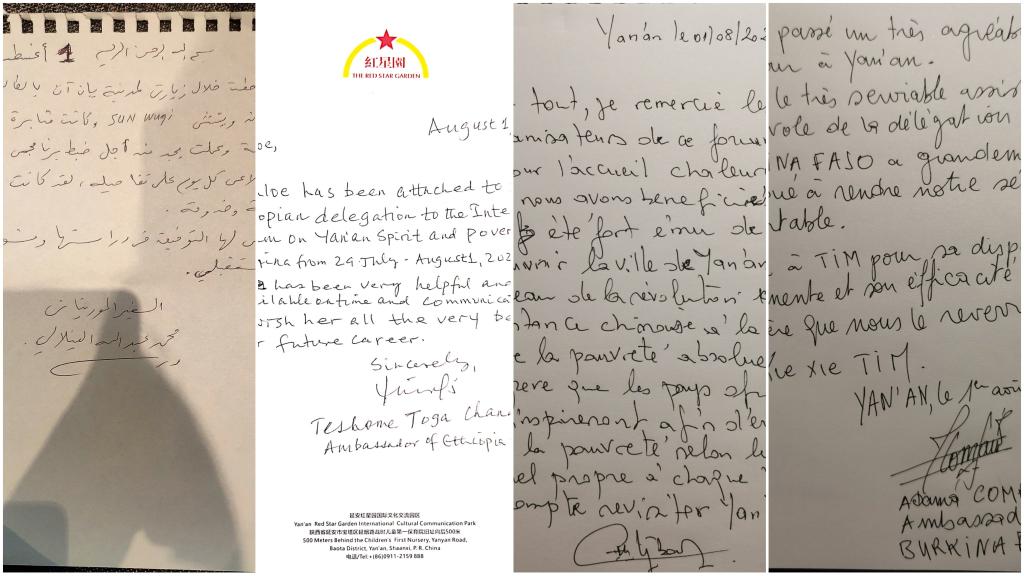 بسم الله الرحمن الرحيم 1 أغسط
خلال زيارتي لمدينة يان آن
sun wugi وكانت مثابرة
أجل ضبط برنامجي
كل يوم على تفاصيله، لقد كانت
لها التوفيق في دراستها
السفير الموريتاني
محمد عبد الله الفيلالي
紅星園
THE RED STAR GARDEN
August 1
oe,
loe has been attached to
opian delegation to the Inte
m on Yan'an Spirit and pover
ina from 29 July - August 1, 202
has been very helpful and
ilable on time and communica
ish her all the very be
r future career.
Sincerely,
Teshome Toga Chan
Ambassador of Ethiopia
延安红星园国际文化交流园区
Yan'an Red Star Garden International Cultural Communication Park
陕西省延安市宝塔区延烟路战时儿童第一保育院旧址向后500米
500 Meters Behind the Children's First Nursery, Yanyan Road,
Baota District, Yan'an, Shaanxi, P. R. China
电话/Tel:+(86)0911-2159 888
Yan'an le 01/08/202
tout, je remercie le
anisateurs de ce forum
our l'accueil chaleur
nous avons bénéficié
été fort ému de
uvrir la ville de Yan'an
eau de la révolution
tance chinoise à la
e la pauvreté absolue
ère que les pays afr
inspireront afin d'ér
la pauvreté selon le
el propre à chaque
ompte revisiter Yan
passé un très agréab
ur à Yan'an.
le très serviable assis
vole de la délégation
INA FASO a grandem
ué à rendre notre sé
table.
à TIM pour sa disp
mente et son efficacité
ère que nous le reverr
ie XIE TIM.
YAN'AN, le 1er aoû
ADAMA COM
Ambassad
BURKINA F